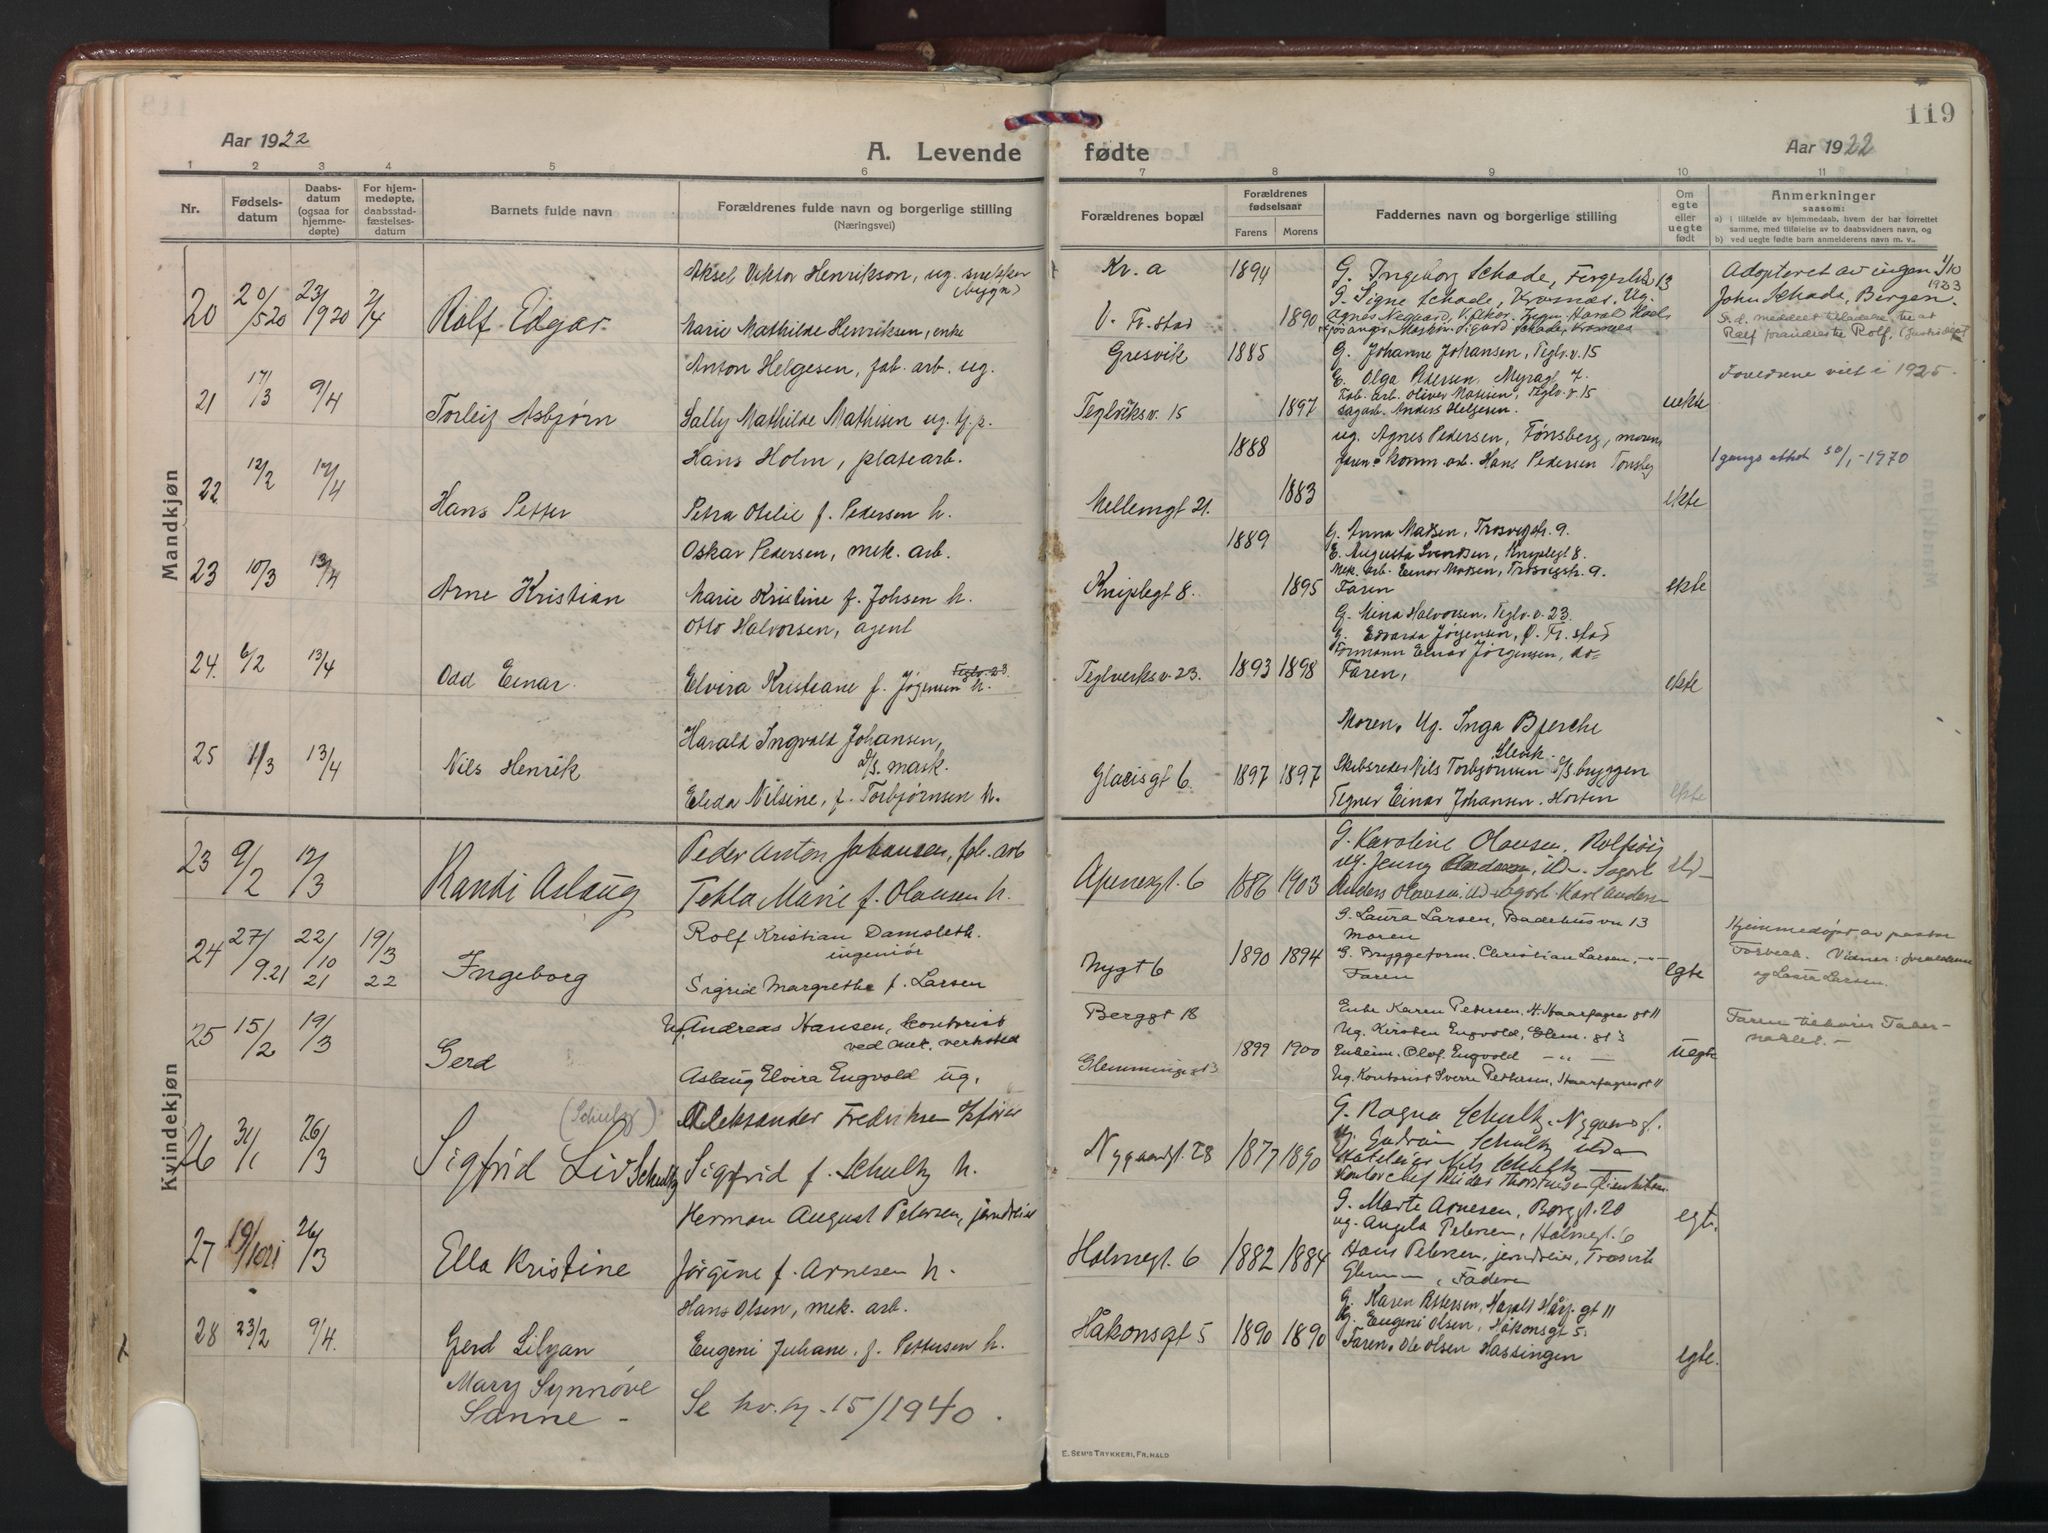 119
Aar 1922
A. Levende fødte
Aar 1922
1 2 3 4 5 6 7 8 9 10 11
Nr.
Fødsels-
datum
Daabs-
datum
(ogsaa for
hjemme-
døpte)
For hjem-
medøpte,
daabsstad-
fæstelses-
datum
Barnets fulde navn
Forældrenes fulde navn og borgerlige stilling
(Næringsvei)
Forældrenes bopæl
Forældrenes
fødselsaar
Farens Morens
Faddernes navn og borgerlige stilling
Om
egte
eller
uegte
født
Anmerkninger
saasom:
a) i tilfælde av hjemmedaab, hvem der har forrettet
samme, med tilføielse av to daabsvidners navn, og
b) ved uegte fødte barn anmelderens navn m. v.,
Mandkjøn
20 20/5 20 23/9 20 2/4 Rolf Edgar
Aksel Viktor Henrikson, ug. snekker
(bygn)
Marie Mathilde Henriksen, enke
Kr. a 1894
V. Fr.stad 1890
G. Ingeborg Schade, 13
G. Signe Schade, Krosnæs, Ug.
Sigurd Schade, Krosnes
Adopteret av ingen 1/10 1923
John Schade, Bergen.
21 17/3 9/4 Torleif Asbjørn
Anton Helgesen, fab. arb. ug.
Sally Mathilde Mathisen ug. tj.p.
Gresvik 1885
Teglviksv. 15 1897
G. Johanne Johansen, Teglv.v. 15
E. Olga Pedersen, Myragt 7.
Fab. arb. Oliver Madsen, Teglv.v. 15
Sagarb. Anders Helgesen.
uekte
Foreldrene viet i 1925.
22 12/2 12/4 Hans Petter
Hans Holm, platearb.
Petra Otelie f. Pedersen h.
Mellemgt 21. 1888 1883
ug. Agnes Pedersen, Tønsberg, moren
faren & komm. arb. Hans Pedersen Tønsbg
ekte
1 gangs attest 30/1-1970
23 10/3 13/4 Arne Kristian
Oskar Pedersen, mek. arb.
Marie Kristine f. Johsen h.
Kniplegt 8. 1889 1895
G. Anna Madsen, Trosvigstr. 9.
E. Augusta Svendsen, Kniplegt 8.
Mek. arb. Einar Madsen, Trosvigstr. 9.
Faren
ekte
24. 6/2 13/4 Odd Einar.
Otto Halvorsen, agent
Elvira Kristiane f. Jørgensen h.
Teglv. 23.
Teglverksv. 23. 1893 1898
G. Mina Halvorsen, Teglv.v. 23.
G. Edvarda Jørgensen, Ø. Fr.stad
Formann Einar Jørgensen, do-
Faren,
ekte
25 11/3 13/4 Nils Henrik
Harald Ingvald Johansen,
D/S. mask.
Elida Nilsine, f. Torbjørnsen h.
Glacisgt 6. 1897 1897
Moren. Ug. Inga Bjerche
Slevik.
Skibsreder Nils Torbjørnsen D/S bryggen
Tegner Einar Johansen. Horten
ekte
Kvindekjøn
23 9/2 12/3 Randi Aslaug
Peder Anton Johansen, fab. arb
Tekla Marie f. Olausen h.
Apenesgt. 6 1886 1903
G. Karoline Olausen, Rolfsøy
ug. Jenny
Anders Olausen Karl Anders
24 27/9.21 22/10 21 19/3 22 Ingeborg
Rolf Kristian Damsleth.
ingeniør
Sigrid Margrethe f. Larsen
Nygt 6 1890 1894
G. Laura Larsen, Badehusvn 13
Moren
G. Bryggeform. Christian Larsen, -"-
Faren
egte
Hjemmedøpt av pastor
Torbeck. Vidner: foreldrene
og Laura Larsen.
25 15/2 19/3 Gerd
Ug. Andreas Hansen, kontorist
ved mek. verksted
Aslaug Elvira Engvold ug.
Berggt 18
Glemmingegt 3 1899 1900
Enke Karen Pettersen, H. Haarfagres gt 11
Ug. Kirsten Engvold, Glem. gt 3
Enkem. Olaf Engvold - " -
Ug. Kontorist Sverre Pettersen, Haarfagresgt 11
uegte
Faren tilhører Taber-
naklet. -
26 31/1 26/3 Sigfrid Liv Schultz
(Schultz)
Aleksander Fredriksen
Sigfrid f. Schultz h.
Nygaardsgt. 28 1877 1890
G. Ragna Schultz, Nygaardsgt.
Ug. Gudrun Schultz
Nils Schultz
27 19/10 21 26/3 Ella Kristine
Herman August Petersen, jerndreier
Jørgine f. Arnesen h.
Holmegt. 6 1882 1884
G. Marte Arnesen, Borggt. 20
ug. Angela Petersen, Holmegt. 6
Hans Petersen, jerndreier, Trosvik
Faderen
egt.
28 23/2 9/4. Gerd Lilyan
Hans Olsen, mek. arb.
Eugeni Juhane, f. Pettersen h.
Håkonsgt 5 1890 1890
G. Karen Pettersen, Harald Hårf. gt 11
G. Eugeni Olsen, Håkonsgt 5.
Faren. Ole Olsen Hassingen
egte.
Mary Synnøve
Sanne -
Se 15/1940.
E. SEM'S TRYKKERI, FR.HALD